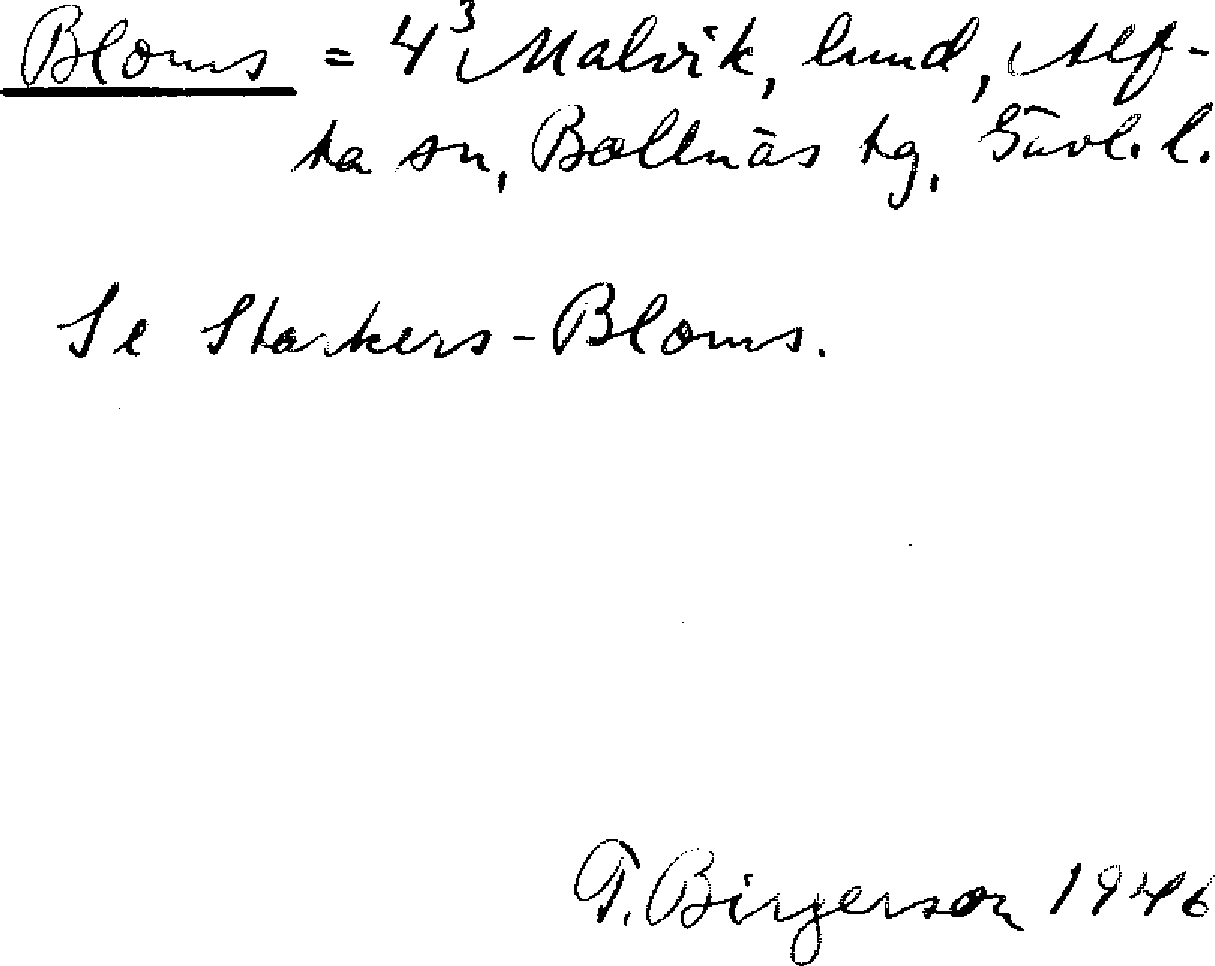 Bloms = 4³ Malvik, lund, Alf-
ta sn, Bollnäs tg, Gävl. l.
Se Starkers-Bloms.
T. Birgerson 1946